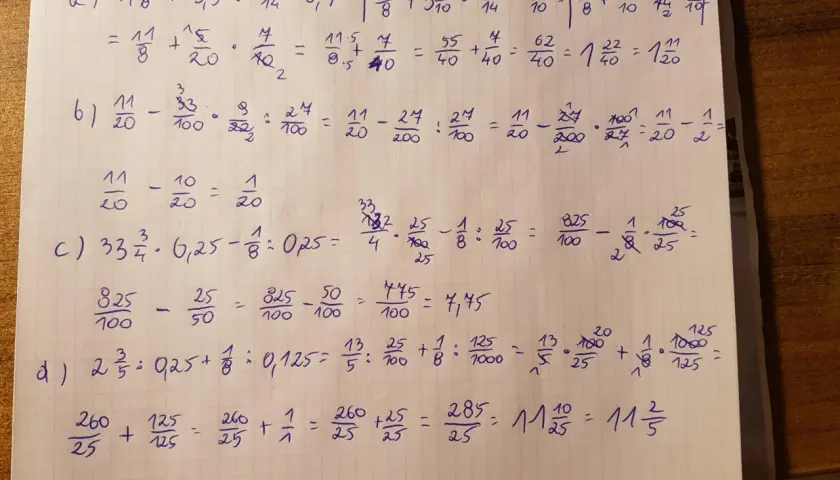 = 11/8 + 5/20 · 7/10 = 11·5/8·5 + 7/40 = 55/40 + 7/40 = 62/40 = 1 22/40 = 1 11/20
b) 11/20 - 33/100 · 9/22 : 27/100 = 11/20 - 27/200 : 27/100 = 11/20 - 27/200 · 100/27 = 11/20 - 1/2 =
11/20 - 10/20 = 1/20
c) 33 3/4 · 6,25 - 1/8 : 0,25 = 132/4 · 25/100 - 1/8 : 25/100 = 825/100 - 1/8 · 100/25 =
825/100 - 25/50 = 825/100 - 50/100 = 775/100 = 7,75
d) 2 3/5 : 0,25 + 1/8 : 0,125 = 13/5 : 25/100 + 1/8 : 125/1000 = 13/5 · 100/25 + 1/8 · 1000/125 =
260/25 + 125/125 = 260/25 + 1/1 = 260/25 + 25/25 = 285/25 = 11 10/25 = 11 2/5